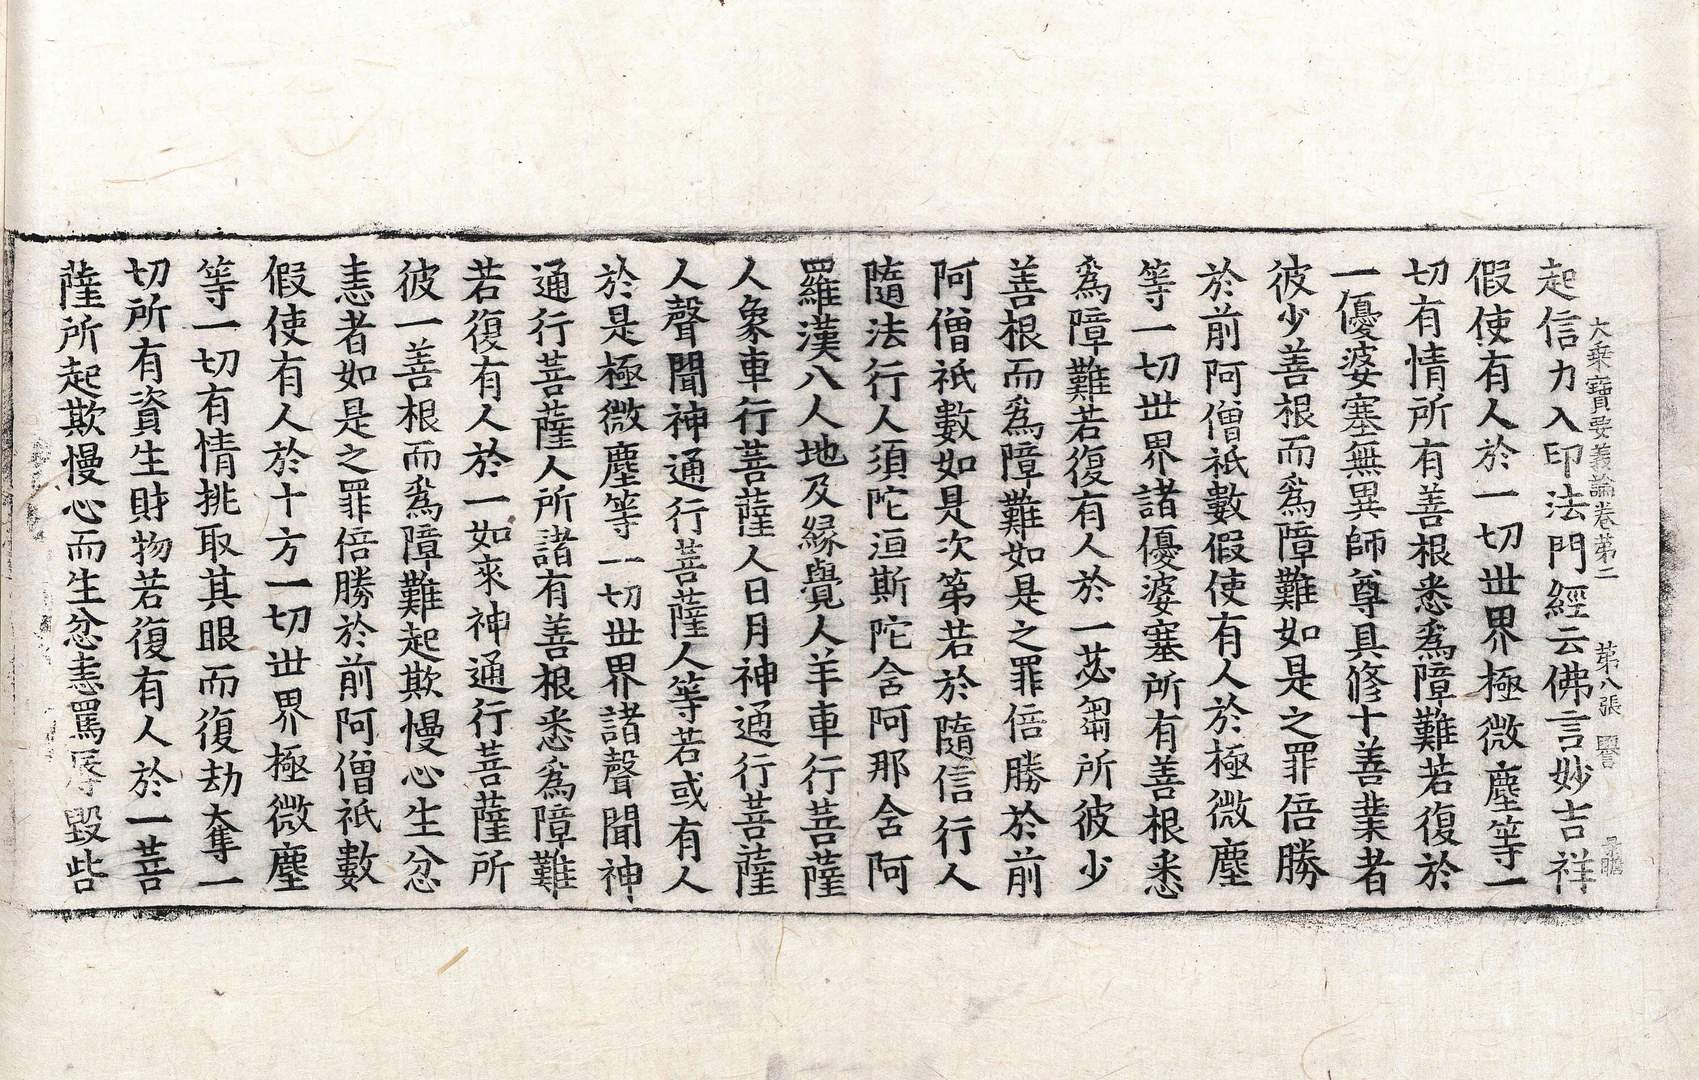 大乘寶要義論卷第二 第八張 毉
起信力入印法門經云佛言妙吉祥
假使有人於一切世界極微塵等一
切有情所有善根悉爲障難若復於
一優婆塞無異師尊具修十善業者
彼少善根而爲障難如是之罪倍勝
於前阿僧祇數假使有人於極微塵
等一切世界諸優婆塞所有善根悉
爲障難若復有人於一苾芻所彼少
善根而爲障難如是之罪倍勝於前
阿僧祇數如是次第若於隨信行人
隨法行人須陀洹斯陀含阿那含阿
羅漢八人地及緣覺人羊車行菩薩
人象車行菩薩人日月神通行菩薩
人聲聞神通行菩薩人等若或有人
於是極微塵等一切世界諸聲聞神
通行菩薩人所諸有善根悉爲障難
若復有人於一如來神通行菩薩所
彼一善根而爲障難起欺慢心生忿
恚者如是之罪倍勝於前阿僧祇數
假使有人於十方一切世界極微塵
等一切有情挑取其眼而復劫奪一
切所有資生財物若復有人於一菩
薩所起欺慢心而生忿恚罵辱毀呰